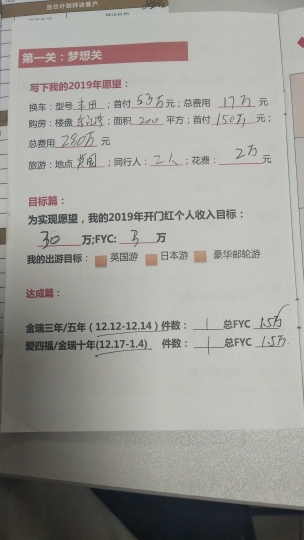 当日计划拜访客户
第一关：梦想关
写下我的2019年愿望：
换车：型号丰田；首付5万元；总费用17万元
购房：楼盘；面积200平方；首付150万元；
总费用280万元
旅游：地点英国；同行人：2人；花费：2万元
目标篇：
为实现愿望，我的2019年开门红个人收入目标：
30万;FYC: 3万
我的出游目标： 英国游 日本游 豪华邮轮游
达成篇：
金瑞三年/五年（12.12-12.14）件数： 1 总FYC 1.5万
爱四福/金瑞十年(12.17-1.4) 件数： 1 总FYC 1.5万